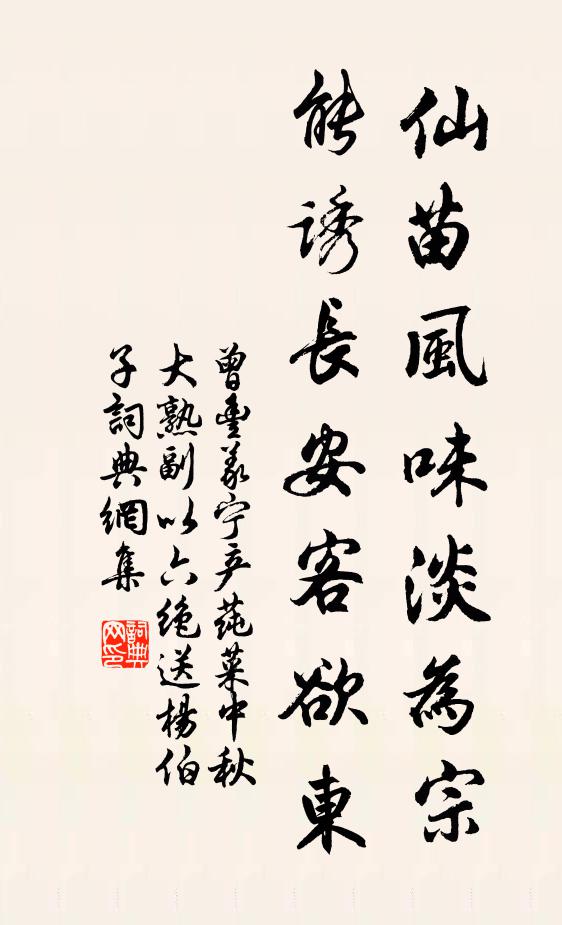 仙苗風味淡為宗
能誘長安客欲東
曾豐義宁产莼菜中秋
大熟副以六絕送楊伯
子詞典網集
詞典网印